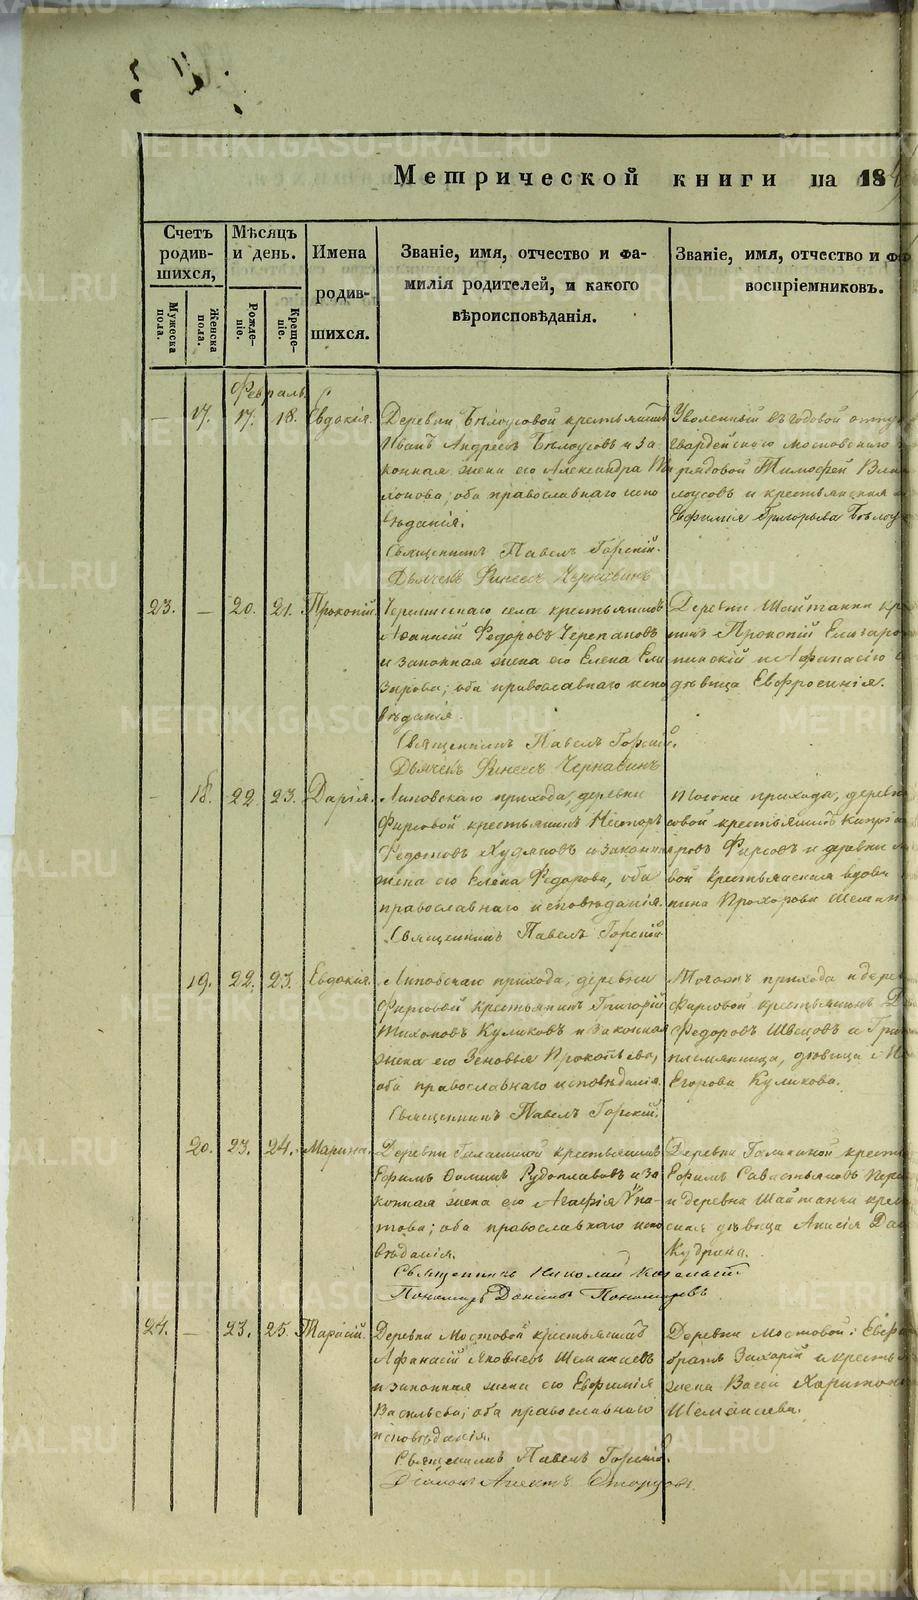 Метрической книги на 18
Счетъ родившихся,
Мѣсяцъ и день.
Имена родившихся.
Званіе, имя, отчество и фамилія родителей, и какого вѣроисповѣданія.
Званіе, имя, отчество и
воспріемниковъ.
Мужеска пола.
Женска пола.
Рожденіе.
Крещеніе.
Февраль
— 17. 17. 18. Евдокія.
Деревни Бѣлоусовой крестьянинъ
Иванъ Андреевъ Бѣлоусовъ и за
конная жена его Александра
оба православнаго испо
вѣданія.
Священникъ Павелъ Горскій.
Дьячекъ Финеесъ Чернавинъ
Уволенный въ годовой
гвардейскаго Московскаго
рядовой Тимофей
лоусовъ и крестьянская
Евфимія Григорьева Бѣлоу
23. — 20. 21. Прокопій.
Черемисскаго села крестьянинъ
Іоанникій Федоровъ Черепановъ
и законная жена его Елена Ели
зарова; оба православнаго испо
вѣданія.
Священникъ Павелъ Горскій.
Дьячекъ Финеесъ Чернавинъ
Деревни Шайтанки кр
нинъ Прокопій
дѣвица Евфросинія.
— 18. 22. 23. Дарія.
Липовскаго прихода, деревни
Фирсовой крестьянинъ Несторъ
Федотовъ Худяковъ и законная
жена его Елена Федорова, оба
православнаго исповѣданія.
Священникъ Павелъ Горскій
Тогоже прихода, деревни
совой крестьянинъ
Фирсовъ и деревни
вой крестьянская вдова
Прохорова Шеман
19. 22. 23. Евдокія.
Липовскаго прихода, деревни
Фирсовой крестьянинъ Григорій
Тихоновъ Куликовъ и законная
жена его Зеновья Прокопьева,
оба православнаго исповѣданія.
Священникъ Павелъ Горскій.
Тогоже прихода и дерев
Фирсовой крестьянинъ
Федоровъ Швецовъ и
племянница, дѣвица
Егорова Куликова.
20. 23. 24. Марина.
Деревни Галаниной крестьянинъ
Ефимъ Фоминъ и за
конная жена его Агафія
това; оба православнаго испо
вѣданія.
Священникъ Николай
Пономарь Даніилъ Пономаревъ
Деревни Галаниной крестья
Ефимъ Савастьяновъ
и деревни Шайтанки крес
ская дѣвица Анисія
Кудрина.
24. — 23. 25. Тарасій.
Деревни Мостовой крестьянинъ
Афанасій Яковлевъ Шеманаевъ
и законная жена его Евфимія
Васильева; оба православнаго
исповѣданія.
Священникъ Павелъ Горскій.
Діаконъ
Деревни Мостовой:
братъ Захарій и кресть
жена Харитон
Шеманаева.